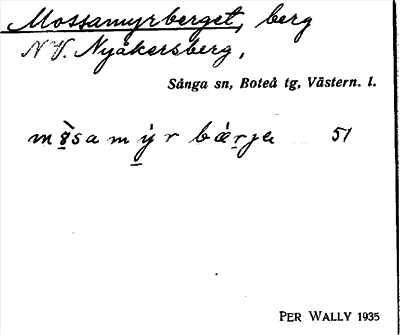 Mossamyrberget, berg
N V. Nyåkersberg,
Sånga sn, Boteå tg, Västern. l.
51
PER WALLY 1935